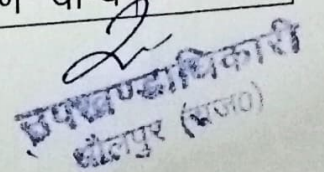 उपखण्डाधिकारी
धौलपुर (राज०)